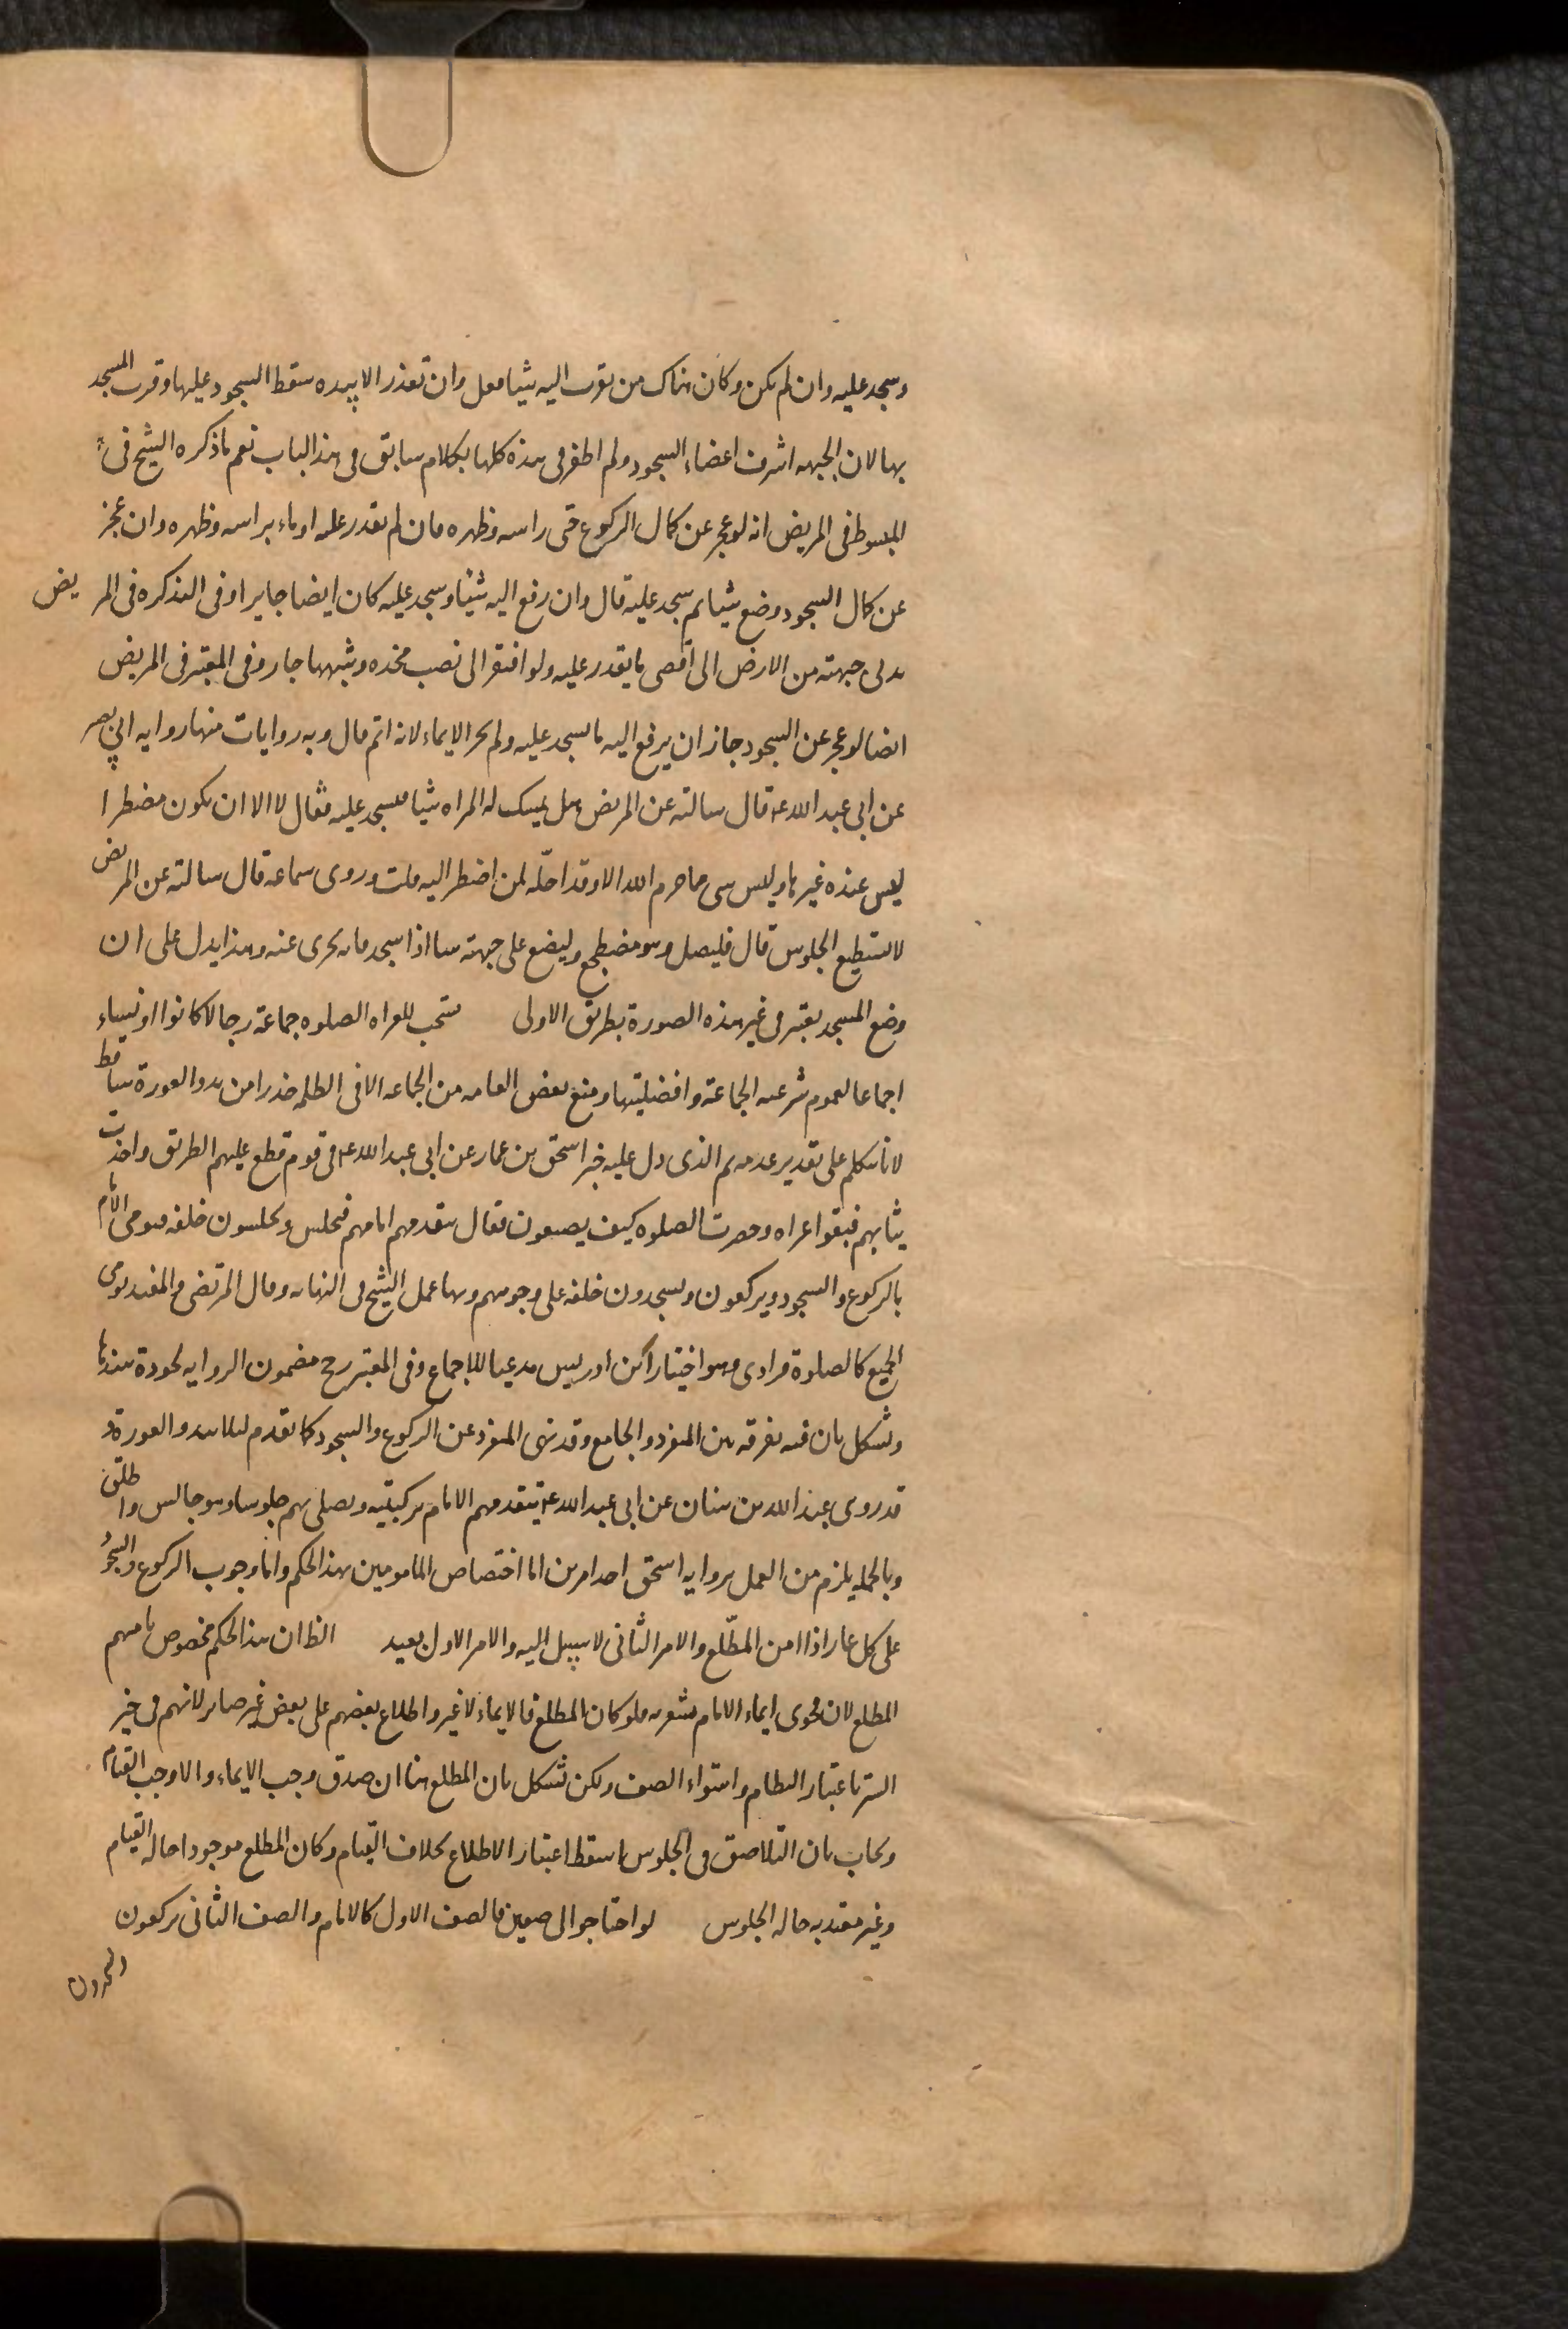 وسجد عليه وان لم يكن وكان هناك من يقرب اليه شيئا فعل وان تعذر الا بيده سقط السجود عليها وقرب المسجد
بها لان الجبهه اشرف اعضاء السجود ولم اظفر فى هذه كلها بكلام سابق فى هذا الباب نعم ما ذكره الشيخ فى
المبسوط فى المريض انه لو عجز عن كمال الركوع حنى راسه وظهره فان لم يقدر عليه اوماء براسه وظهره وان عجز
عن كمال السجود وضع شيئا ثم سجد عليه قال وان رفع اليه شيئا وسجد عليه كان ايضا جايزا وفى التذكره فى المريض
يدنى جبهته من الارض الى اقصى ما يقدر عليه ولو افتقر الى نصب مخده وشبهها جاز وفى المعتبر فى المريض
ايضا لو عجز عن السجود جاز ان يرفع اليه ما يسجد عليه ولم يجز الايماء لانه اتم قال وبه روايات منها روايه ابى بصير
عن ابى عبد الله ع قال سالته عن المريض هل يمسك له المراه شيئا فيسجد عليه فقال لا الا ان يكون مضطرا
ليس عنده غيرها وليس شى مما حرم الله الا وقد احلّه لمن اضطر اليه قلت وروى سماعه قال سالته عن المريض
لا يستطيع الجلوس قال فليصل وهو مضطجع وليضع على جبهته شيئا اذا سجد فانه يجزى عنه وهذا يدل على ان
وضع المسجد يعتبر فى غير هذه الصورة بطريق الاولى يستحب للعراه الصلوه جماعة رجالا كانوا او نساء
اجماعا لعموم شرعيه الجماعة وافضليتها ومنع بعض العامه من الجماعه الا فى الظلمه حذرا من بدو العورة ساقط
لانا نتكلم على تقدير عدمه ثم الذى دل عليه خبر اسحق بن عمار عن ابى عبد الله ع فى قوم قطع عليهم الطريق واخذت
ثيابهم فبقوا عراه وحضرت الصلوه كيف يصنعون فقال يتقدمهم امامهم فيجلس ويجلسون خلفه فيومى الامام
بالركوع والسجود ويركعون ويسجدون خلفه على وجوههم وبها عمل الشيخ فى النهايه وقال المرتضى والمفيد يومى
الجميع كالصلوة فرادى وهو اختيار ابن ادريس مدعيا للاجماع وفى المعتبر رجح مضمون الروايه لجودة سندها
ويشكل بان فيه تفرقه بين المنفرد والجامع وقد نهى المنفرد عن الركوع والسجود كما تقدم لئلا يبدو العورة و
قد روى عبد الله بن سنان عن ابى عبد الله ع يتقدمهم الامام بركبتيه ويصلى بهم جلوسا وهو جالس واطلق
وبالجمله يلزم من العمل بروايه اسحق احد امرين اما اختصاص المامومين بهذا الحكم واما وجوب الركوع والسجود
على كل عار اذا امن المطّلع والامر الثانى لا سبيل اليه والامر الاول بعيد الظ ان هذا الحكم مخصوص بامنهم
المطلع لان فحوى ايماء الامام مشعر به فلو كان المطلع فالايماء لا غير واطلاع بعضهم على بعض غير ضاير لانهم فى حيز
الستر باعتبار النظام واستواء الصف ولكن يشكل بان المطلع هنا ان صدق وجب الايماء والا وجب القيام
ويجاب بان التلاصق فى الجلوس اسقط اعتبار الاطلاع بخلاف القيام وكان المطلع موجودا حاله القيام
وغير معتد به حاله الجلوس لو احتاجوا الى صفين فالصف الاول كالامام والصف الثانى يركعون
ويسجدون